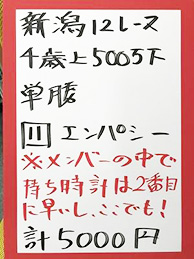 新潟12レース
4歳上500万下
単勝
11 エンパシー
※メンバーの中で
持ち時計は2番目
に早いし、ここでも!
計5000円